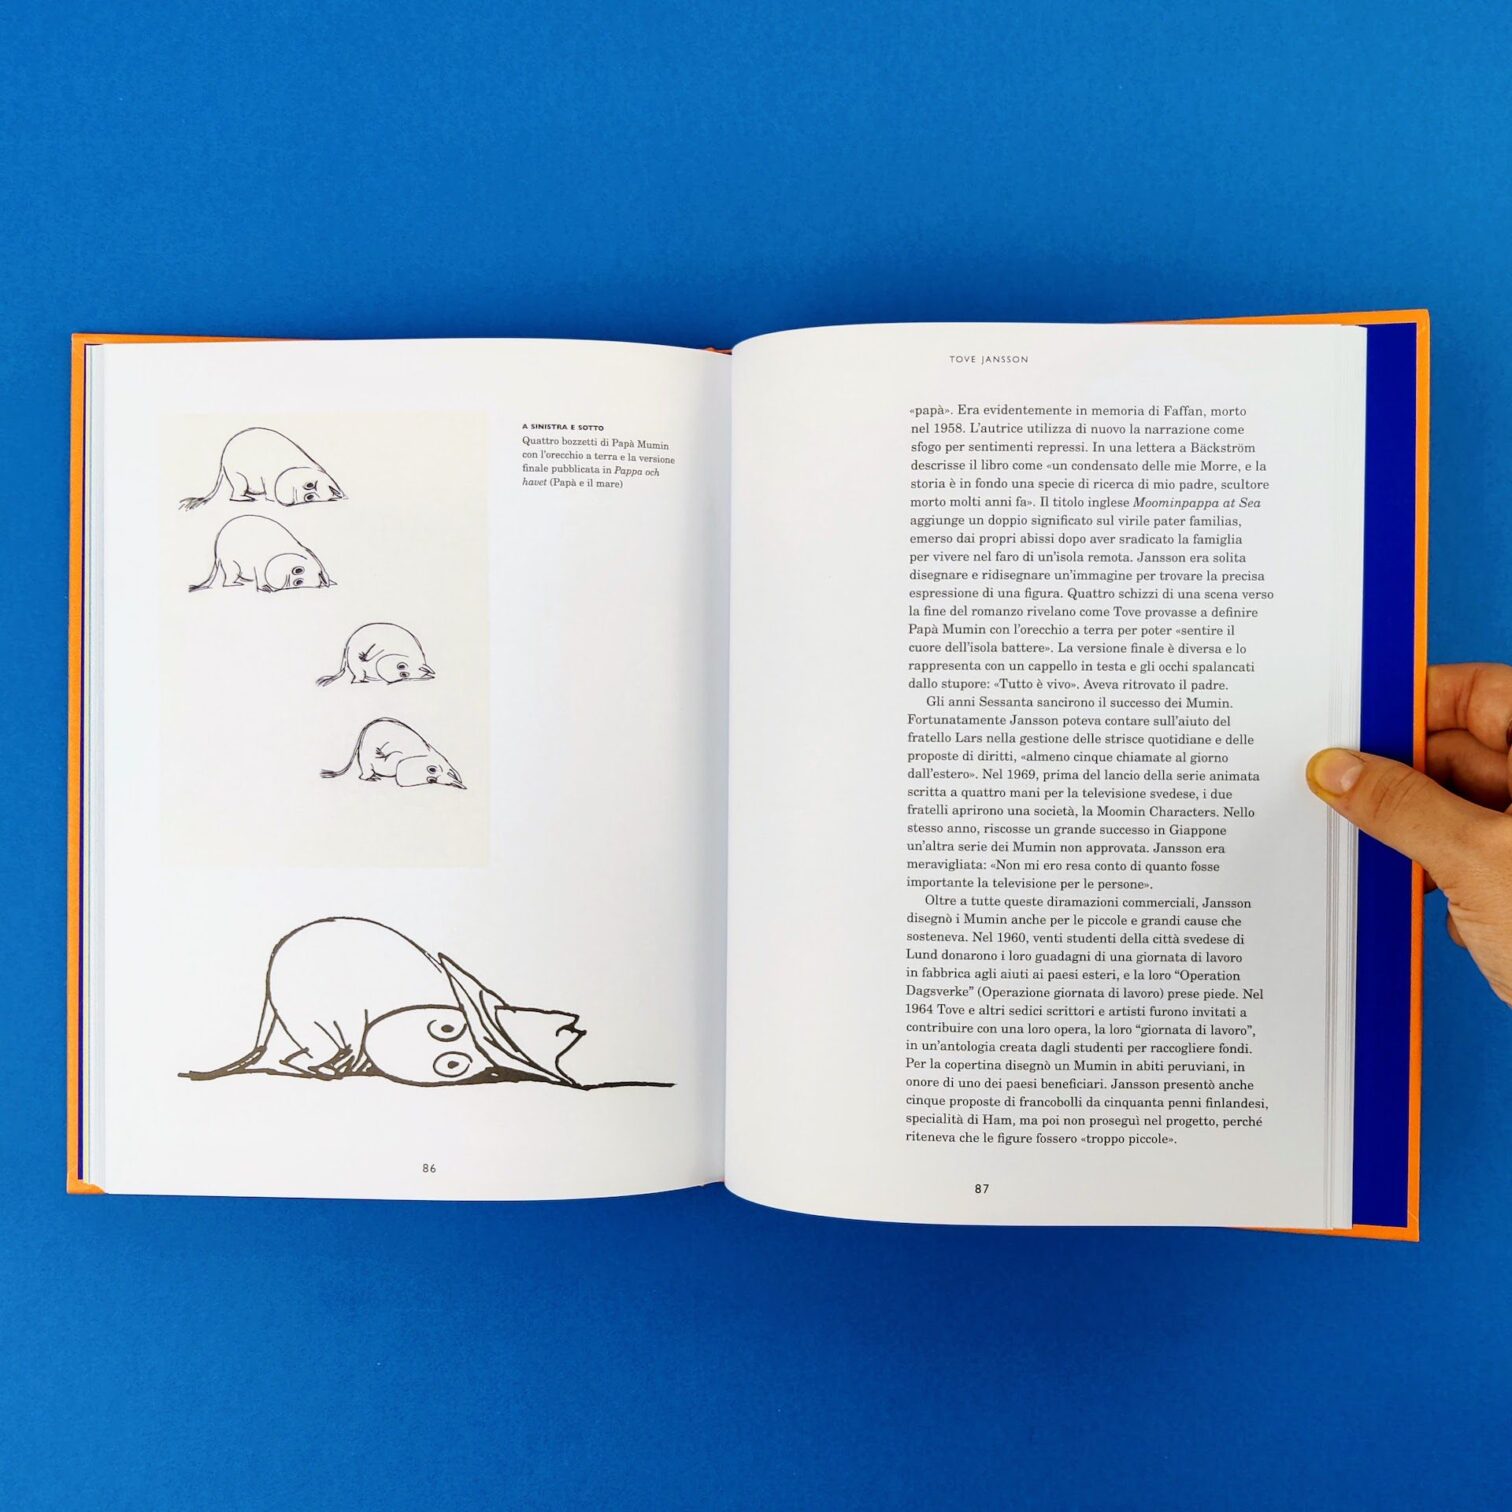 A SINISTRA E SOTTO
Quattro bozzetti di Papà Mumin
con l'orecchio a terra e la versione
finale pubblicata in Pappa och
havet (Papà e il mare)
86
TOVE JANSSON
«papà». Era evidentemente in memoria di Faffan, morto
nel 1958. L'autrice utilizza di nuovo la narrazione come
sfogo per sentimenti repressi. In una lettera a Bäckström
descrisse il libro come «un condensato delle mie Morre, e la
storia è in fondo una specie di ricerca di mio padre, scultore
morto molti anni fa». Il titolo inglese Moominpappa at Sea
aggiunge un doppio significato sul virile pater familias,
emerso dai propri abissi dopo aver sradicato la famiglia
per vivere nel faro di un'isola remota. Jansson era solita
disegnare e ridisegnare un'immagine per trovare la precisa
espressione di una figura. Quattro schizzi di una scena verso
la fine del romanzo rivelano come Tove provasse a definire
Papà Mumin con l'orecchio a terra per poter «sentire il
cuore dell'isola battere». La versione finale è diversa e lo
rappresenta con un cappello in testa e gli occhi spalancati
dallo stupore: «Tutto è vivo». Aveva ritrovato il padre.
Gli anni Sessanta sancirono il successo dei Mumin.
Fortunatamente Jansson poteva contare sull'aiuto del
fratello Lars nella gestione delle strisce quotidiane e delle
proposte di diritti, «almeno cinque chiamate al giorno
dall'estero». Nel 1969, prima del lancio della serie animata
scritta a quattro mani per la televisione svedese, i due
fratelli aprirono una società, la Moomin Characters. Nello
stesso anno, riscosse un grande successo in Giappone
un'altra serie dei Mumin non approvata. Jansson era
meravigliata: «Non mi ero resa conto di quanto fosse
importante la televisione per le persone».
Oltre a tutte queste diramazioni commerciali, Jansson
disegnò i Mumin anche per le piccole e grandi cause che
sosteneva. Nel 1960, venti studenti della città svedese di
Lund donarono i loro guadagni di una giornata di lavoro
in fabbrica agli aiuti ai paesi esteri, e la loro "Operation
Dagsverke" (Operazione giornata di lavoro) prese piede. Nel
1964 Tove e altri sedici scrittori e artisti furono invitati a
contribuire con una loro opera, la loro "giornata di lavoro",
in un'antologia creata dagli studenti per raccogliere fondi.
Per la copertina disegnò un Mumin in abiti peruviani, in
onore di uno dei paesi beneficiari. Jansson presentò anche
cinque proposte di francobolli da cinquanta penni finlandesi,
specialità di Ham, ma poi non proseguì nel progetto, perché
riteneva che le figure fossero «troppo piccole».
87